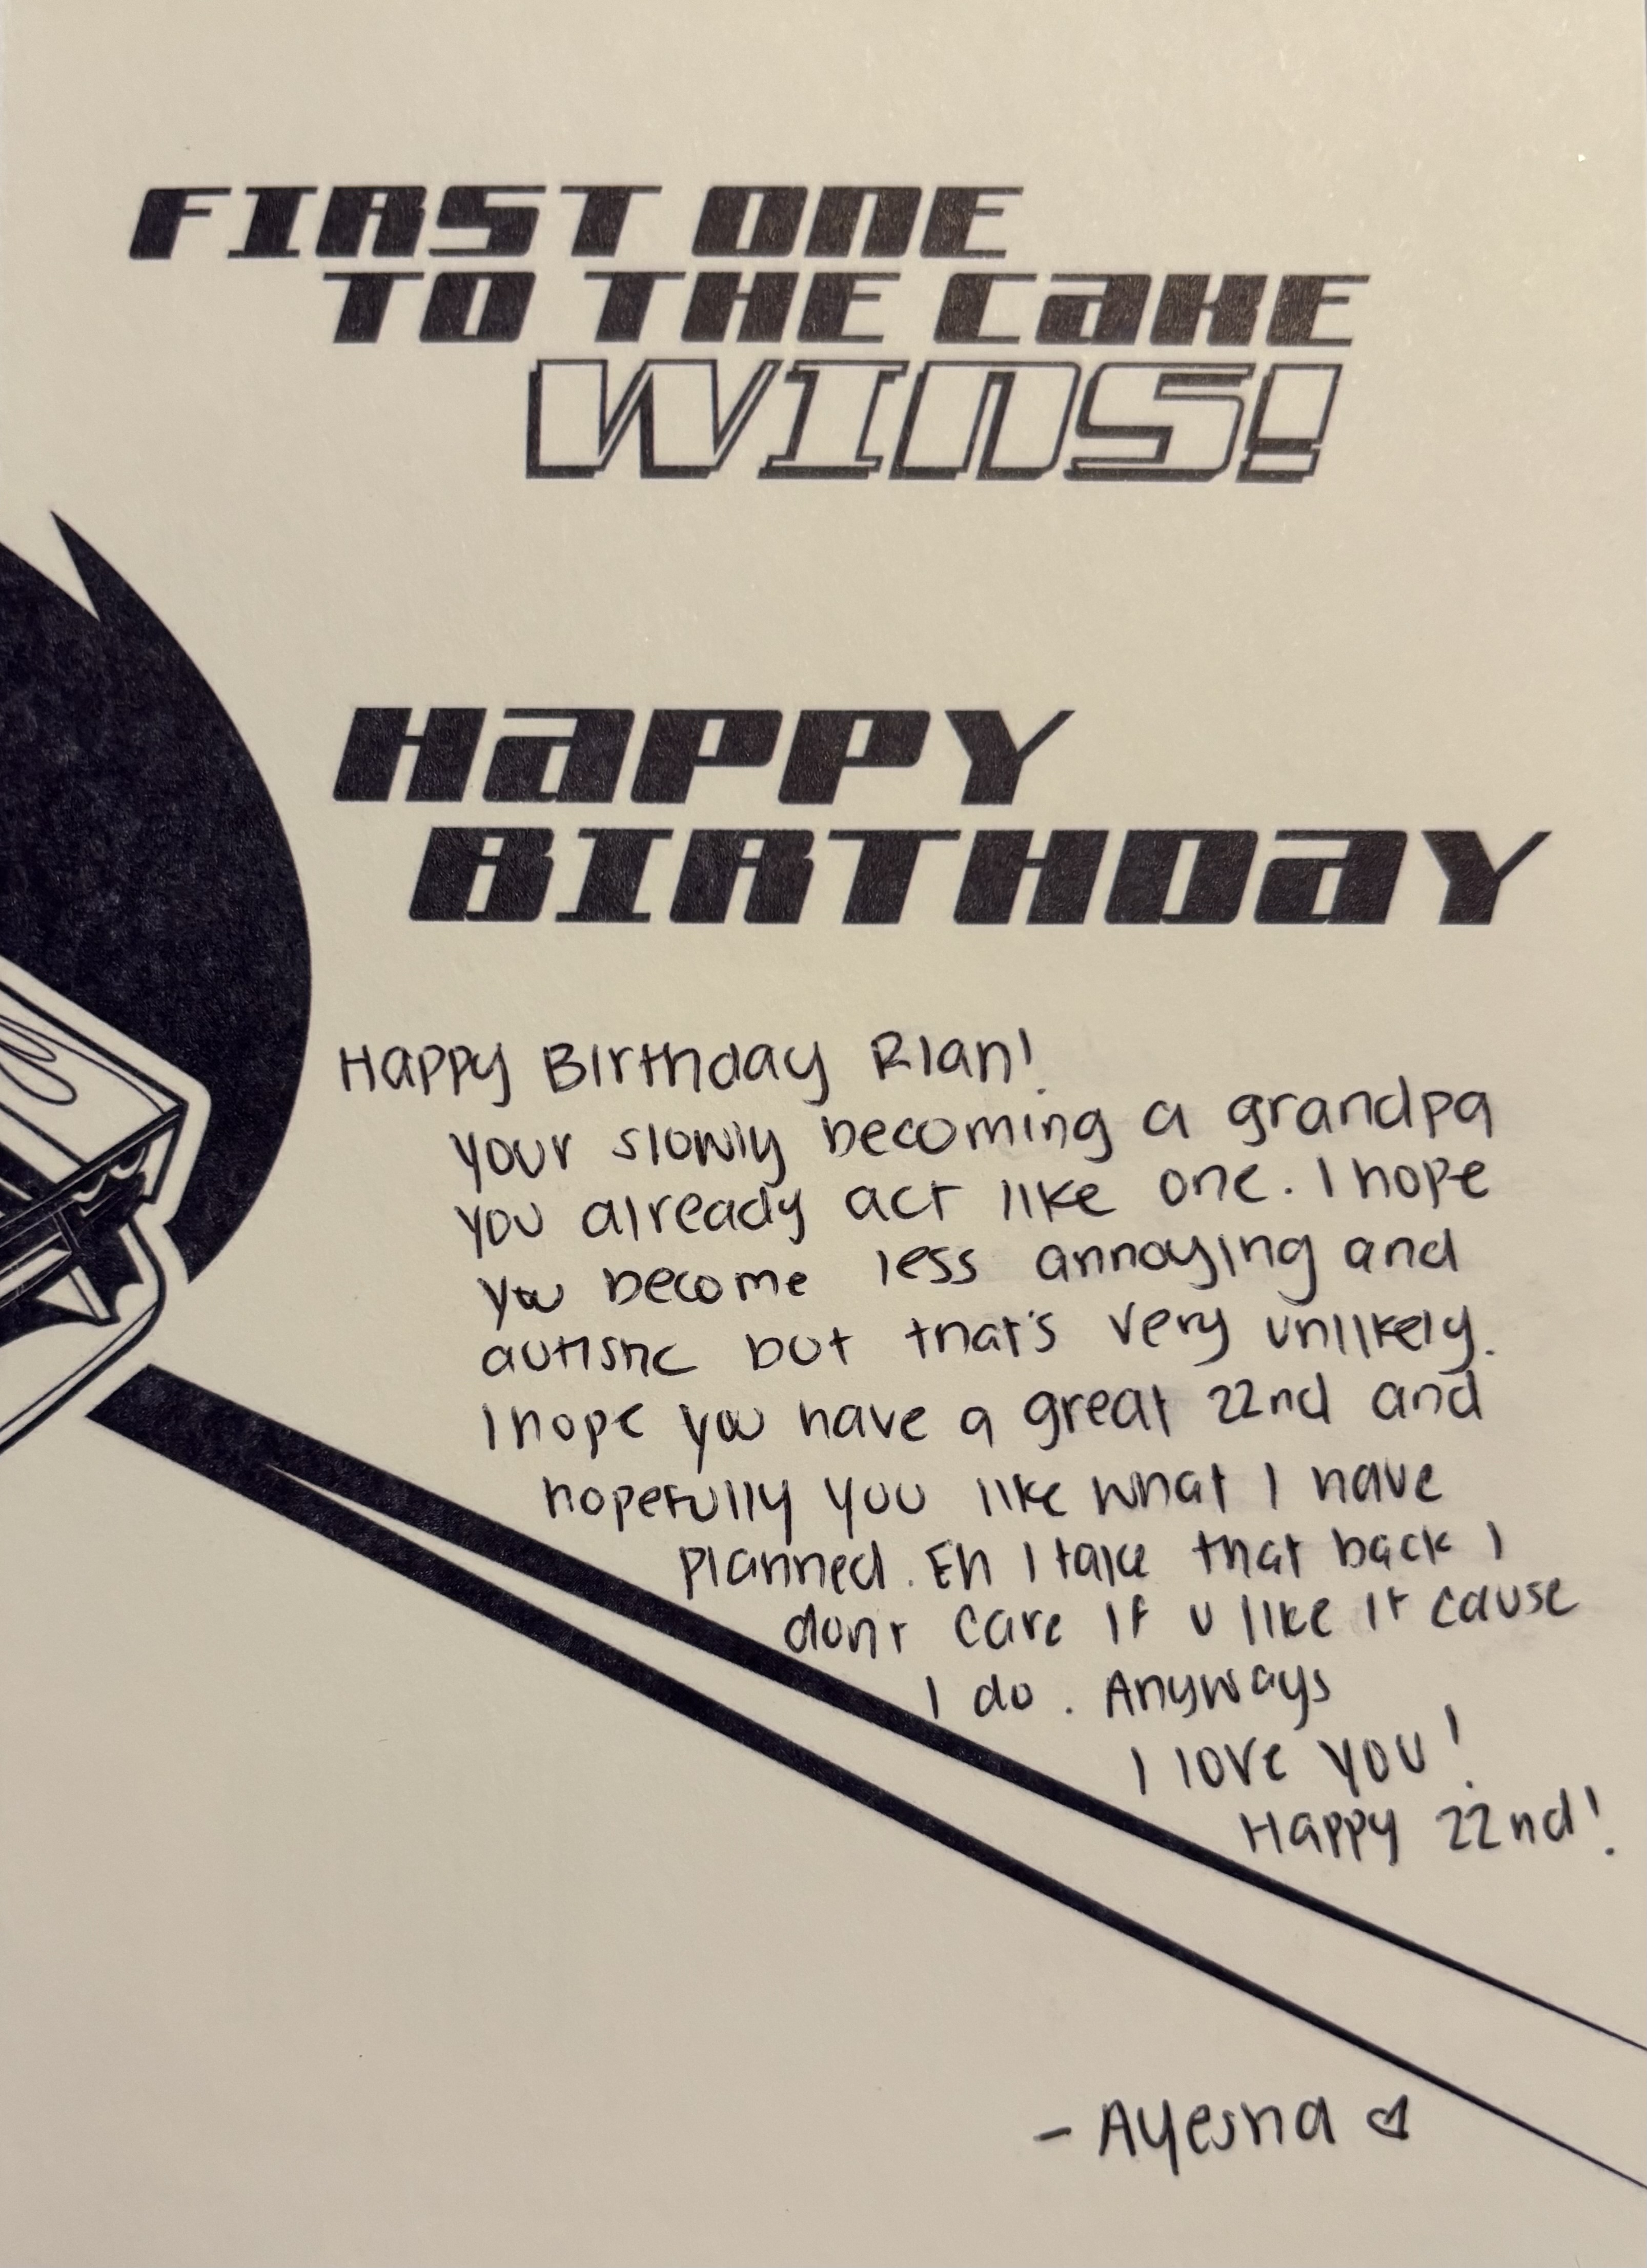 FIRST ONE
TO THE CAKE
WINS!
HAPPY
BIRTHDAY
Happy Birthday Rian!
your slowly becoming a grandpa
you already act like one. I hope
you become less annoying and
autistic but that's very unlikely.
I hope you have a great 22nd and
hopefully you like what I have
planned. Eh I take that back I
don't care if u like it cause
I do. Anyways
I love you!
Happy 22nd!
- Ayesha ♡